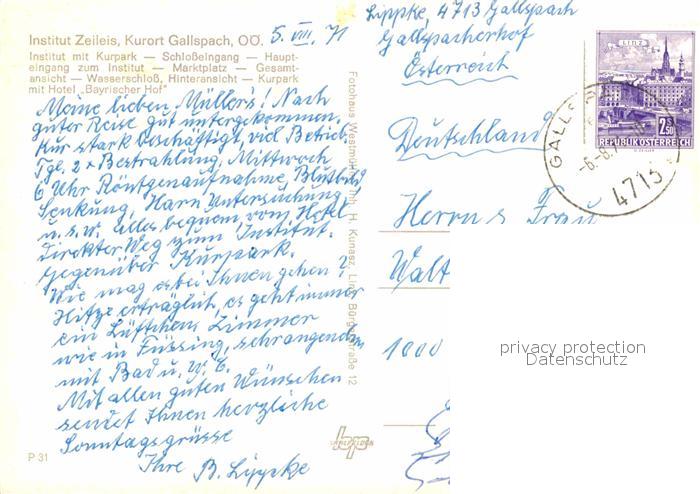 Institut Zeileis, Kurort Gallspach, OÖ.
Institut mit Kurpark — Schloßeingang — Haupt-
eingang zum Institut — Marktplatz — Gesamt-
ansicht — Wasserschloß, Hinteransicht — Kurpark
mit Hotel „Bayrischer Hof"
5. VIII. 71
Meine lieben Müller's! Nach
guter Reise gut untergekommen.
Kur stark beschäftigt, viel Betrieb.
Tgl. 2 x Bestrahlung, Mittwoch
6 Uhr Röntgenaufnahme, Blutbild
Senkung, Harn Untersuchung
u.s.w. alles bequem vom Hotel
direkter Weg zum Institut.
Gegenüber Kurpark.
Wie mag es bei Ihnen gehen?
Hitze erträglich, es geht immer
ein Lüftchen, Zimmer
wie in Füssing,
mit Bad u. W.C.
Mit allen guten Wünschen
sendet Ihnen herzliche
Sonntagsgrüsse
Ihre B. Lippke
P 31
Fotohaus Westmüller, Inh. H. Kunasz, Linz, Bürgerstraße 12
Lippke, 4713 Gallspach
Gallspacherhof
Österreich
Deutschland
Herrn u Frau
Walt
1000
LINZ
2.50
REPUBLIK ÖSTERREICH
GALLSP
-6.-8.7
4713
privacy protection
Datenschutz